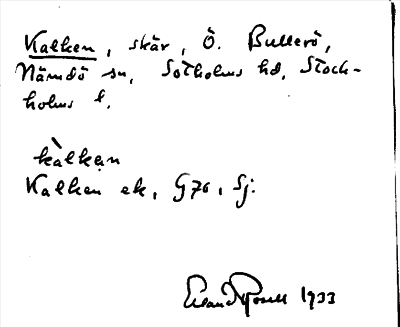 Kalken, skär, Ö. Bullerö,
Nämdö sn, Sotholms hd, Stock-
holms l.
kàlkạn
Kalken ek, G76, Sj.
1933